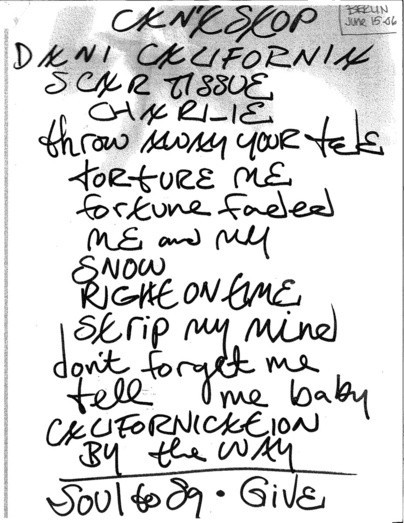 BERLIN
June 15-06
CAN'T STOP
DANI CALIFORNIA
SCAR TISSUE
CHARLIE
throw AWAY YOUR tele
torture ME
fortune faded
ME and MY
SNOW
RIGHT ON tIME
strip my mind
don't forget me
tell me baby
CALIFORNICATION
BY the WAY
Soul to Sq • GiVE